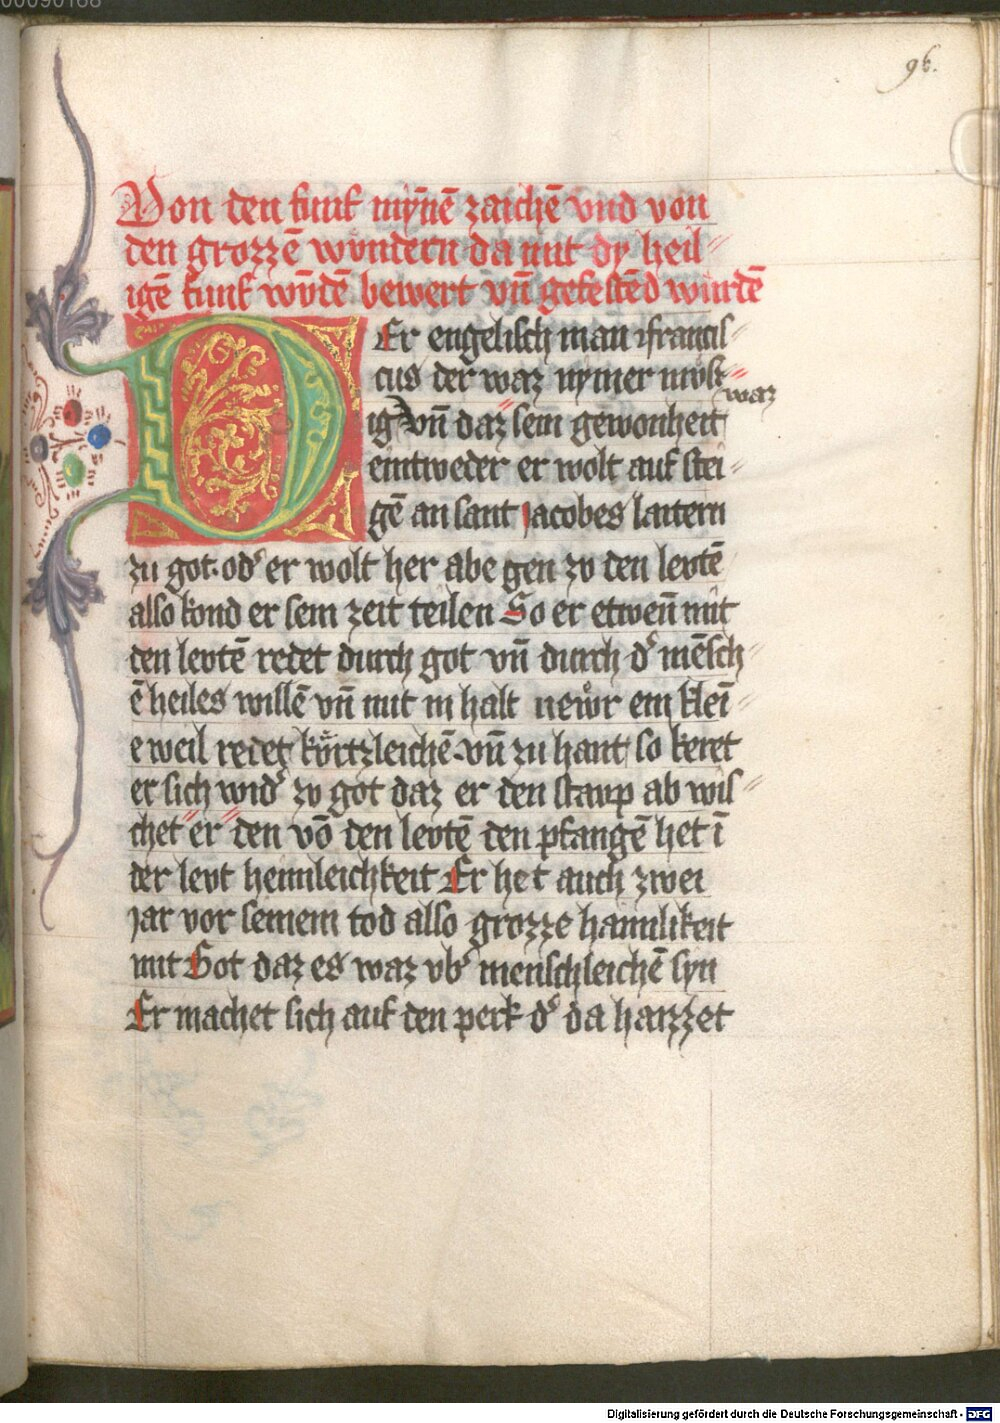 00090168
96.
Von den funf mỹnē zaichē vnd von
den grozzē wundern da mit dy heil⸗
igē funf wūdē bewert vn̄ gefestēd wurdē
DEr engelisch man ffrancis⸗
cus der waz nymer müsk⸗
ig vn̄ daz sein gewonheit waz
eintweder er wolt auf stei⸗
gē an sant jacobes laitern
zu got. od' er wolt her abe gen zv den levtē
also kond er sein zeit teilen So er etwen̄ mit
den levtē redet durch got vn̄ durch d' mēsch⸗
ē heiles willē vn̄ mit in halt newr ein kleī⸗
e weil redet körtzleichē. vn̄ zu hant so keret
er sich wid' zv got daz er den stavp ab wis⸗
chet er den vō den levtē den pfangē het ī
der levt heimleichkeit Er het auch zwei
jar vor seinem tod also grozze haimlikeit
mit Got daz es waz vb' menschleichē syn
Er machet sich auf den perk d' da haizzet
Digitalisierung gefördert durch die Deutsche Forschungsgemeinschaft - DFG